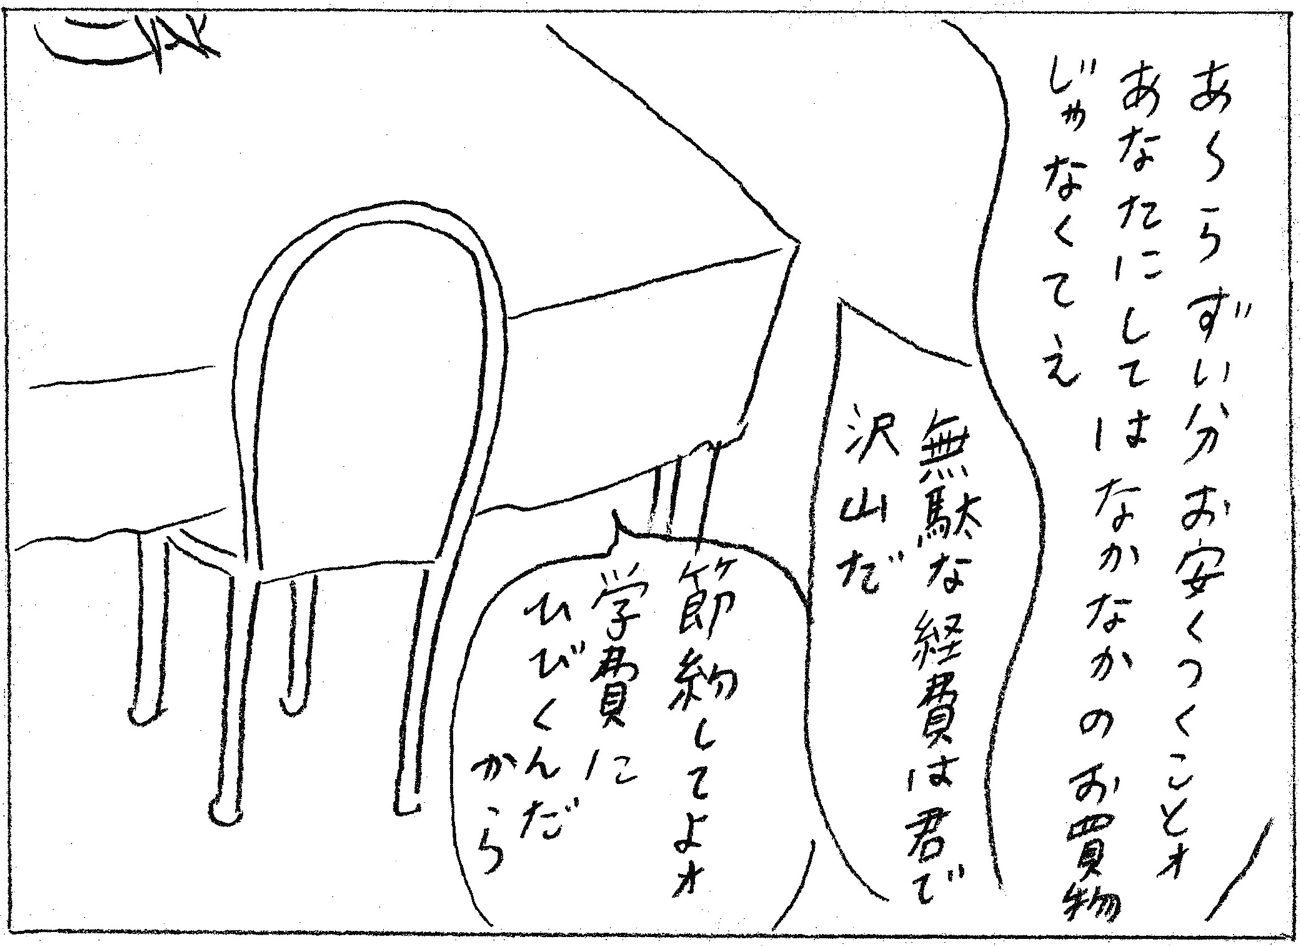 あゝらずい分お安くつくことオ
あなたにしてはなかなかのお買物
じゃなくてえ
無駄な経費は君で
沢山だ
節約してよオ
学費に
ひびくんだ
から